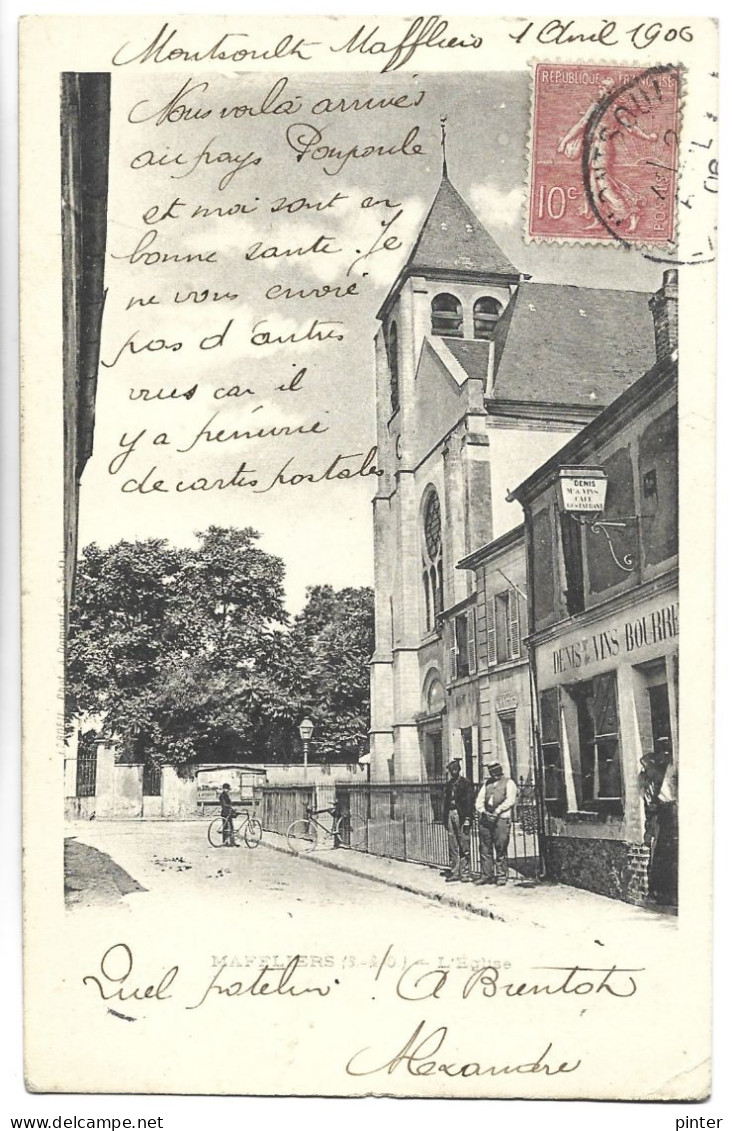 Montsoult Maffliers 1 Avril 1906
Nous voilà arrivés
au pays Poupoule
et moi sont en
bonne santé. Je
ne vous envoie
pas d'autres
vues car il
y a pénurie
de cartes postales
REPUBLIQUE FRANÇAISE
10c
POSTES
DENIS
Md. VINS
CAFÉ
RESTAURANT
DENIS Md. de VINS BOURRE
MAFFLIERS (S.-&-O.) — L'Église
Quel patelin ! A Bientôt
Alexandre
pinter